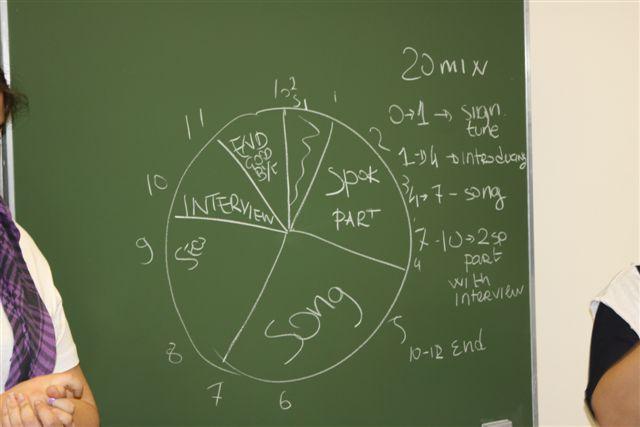 20 min
0→1 → sign.
tune
1→4 → introducing
4→7 - song
7-10→2sp
part
with
interview
10-12 End
12
1
2
3
4
5
6
7
8
9
10
11
END
GOOD
BYE
SPOK
PART
INTERVIEW
SONG